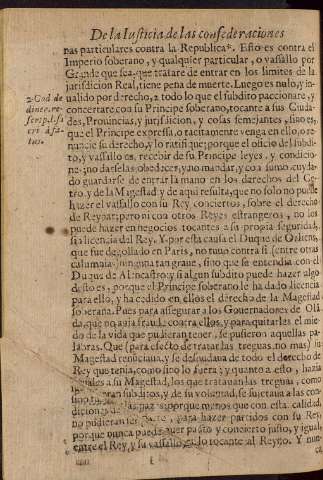 De la Iusticia de las confederaciones
nas particulares contra la Republica. Esto es contra el
Imperio soberano, y qualquier particular, o vassallo por
Grande que sea, que tratare de entrar en los limites de la
jurisdicion Real, tiene pena de muerte. Luego es nulo, y in-
ualido por derecho, todo lo que el subdito paccionare, y
concertare con su Principe soberano, tocante a sus Ciuda-
des, Prouincias, y jurisdicion, y cosas semejantes, sino es,
que el Principe expressa, o tacitamente venga en ello, o re-
nuncie su derecho, y lo ratifique; porque el oficio del subdi-
to, y vassallo es, recebir de su Principe leyes, y condicio-
nes; no darselas, obedicer, y no mandar, y con sumo cuyda-
do guardarse de entrar la mano en los derechos del Ce-
tro, y de la Magestad y de aqui resulta, que no solo no puede
hazer el vassallo con su Rey conciertos, sobre el derecho
de Reynar; pero ni con otros Reyes estrangeros, no los
puede hazer en negocios tocantes a su propia seguridad,
sin licencia del Rey. Y por esta causa el Duque de
que fue degollado en Paris, no tuuo contra si (entre otras
calumnias) ninguna tan graue, sino que se entendia con el
Duque de Alencastro; y si algun subdito puede hazer algo
desto es, porque el Principe soberano le ha dado licencia
para ello, y ha cedido en ellos el derecho de la Magestad
soberana. Pues para assegurar a los Gouernadores de Olã-
da, que no auia fraude contra ellos, y para quitarles el mie-
do de la vida que pudieran tener, se pusieron aquellas pa-
labras. Que (para efecto de tratar las treguas no mas) su
Magestad renunciaua, y se desnudaua de todo el derecho de
Rey que tenia, como sino lo fuera; y quanto a esto, hazia
iguales a su Magestad, los que tratauan las treguas, como
sino fueran subditos, y de su voluntad, se sugetaua a las con-
diciones de las paz porque menos que con esta calidad,
no pudieran ser parte, para hazer partidos con su Rey,
porque nunca puede auer pacto y concierto justo, y igual
entre el Rey y su vassallo, en lo tocante al Reyno. Y nun-
ca
2. Cod de